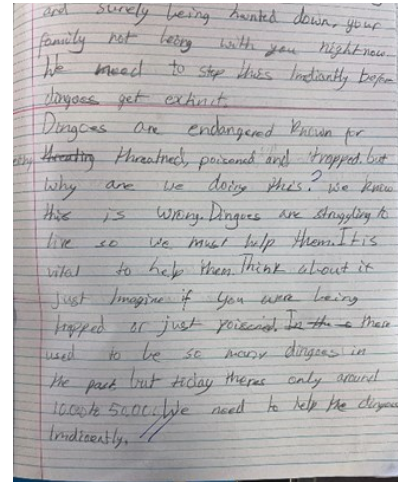 and surely being hunted down, your
family not being with you right now.
We need to stop this Imdiantly before
dingoes get extinct.
Dingoes are endangered known for
threating threatned, poisoned and trapped. but
why are we doing this? we know
this is wrong. Dingoes are struggling to
live so we must help them. It is
vital to help them. Think about it
just Imagine if you were being
trapped or just poisened. In the there
used to be so many dingoes in
the past, but today theres only around
10,000 to 50,000. We need to help the dingoes
Imdicently.